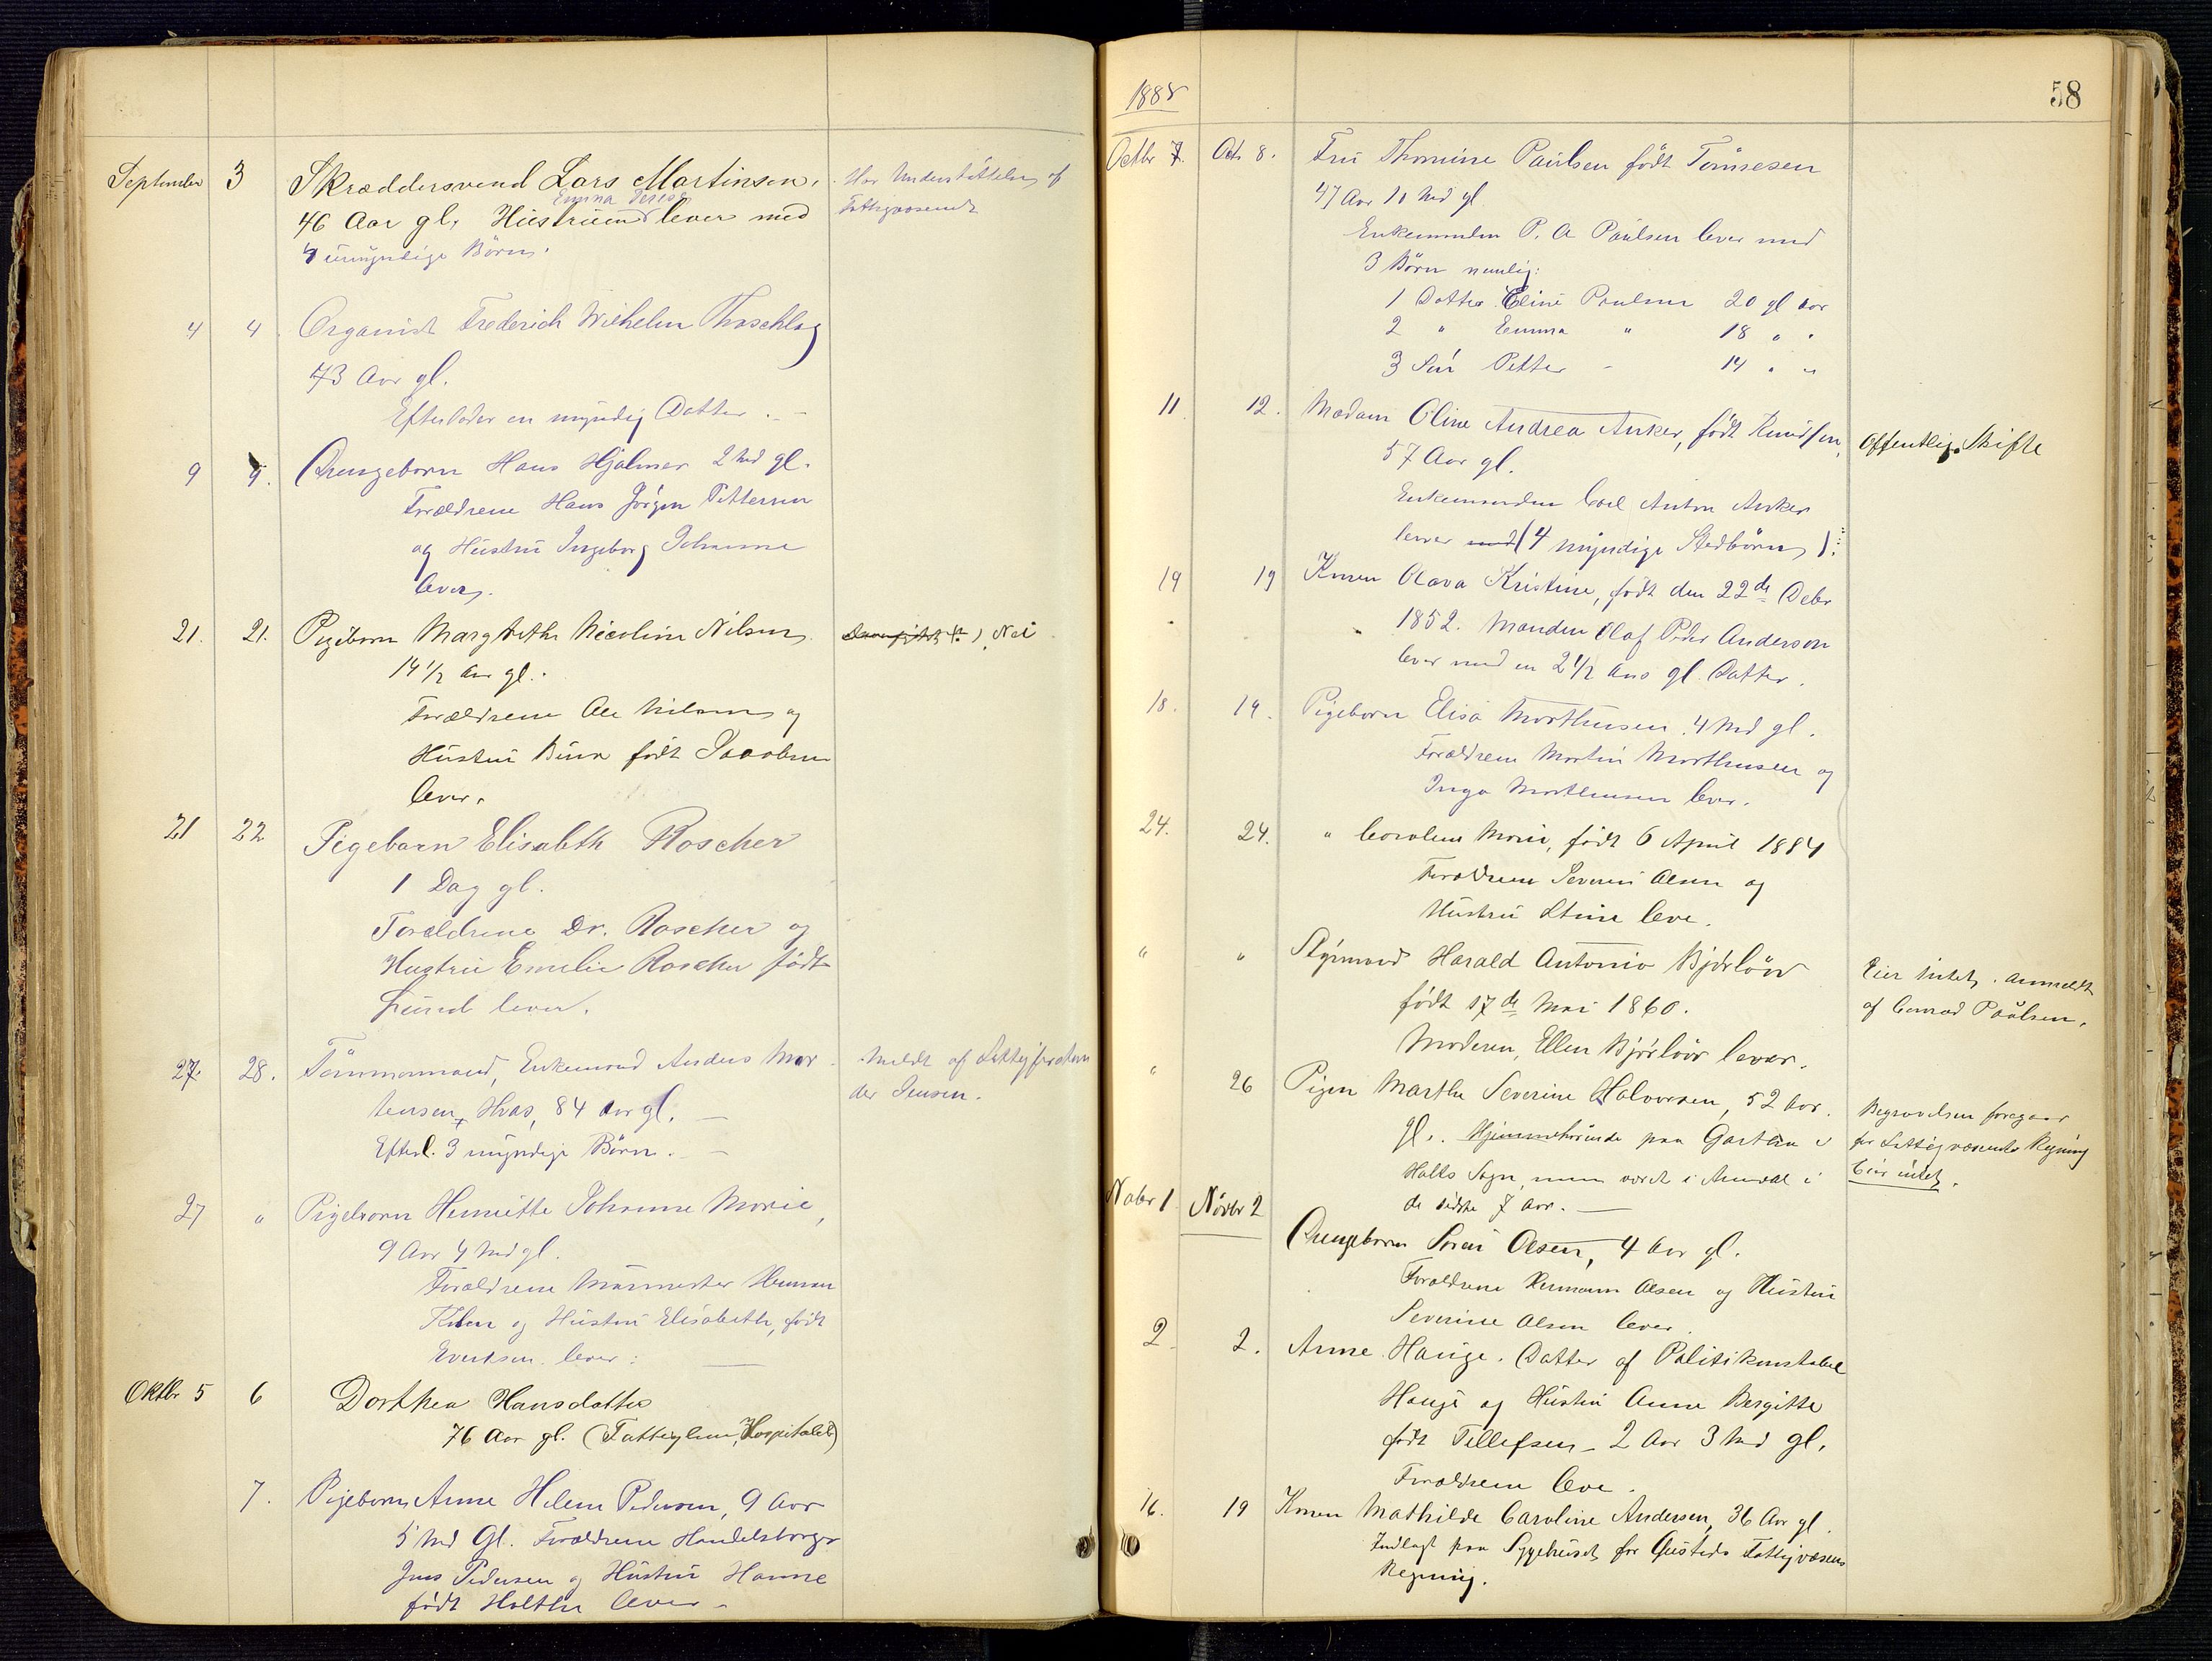 September 3 Skræddersvend Lars Martinsen. Har Understøttelse af
Emma
46 Aar gl. Hustruen lever med Fattigvæsenet
4 umyndige Børn.
4 4. Organist Frederich Wilhelm Thaschlag
73 Aar gl.
Efterlader en myndig Datter. –
9 9. Drengebarn Hans Hjalmar 2 Md gl.
Forældrene Hans Jørgen Pettersen
og Hustru Ingeborg Johanne
lever.
21. 21. Pigebarn Margrethe Nicoline Nilsen Nei
14 1/2 Aar gl.
Forældrene Ole Nilsen og
Hustru født Jacobsen
lever.
21 22 Pigebarn Elisabeth Roscher
1 Dag gl.
Forældrene Dr. Roscher og
Hustru Emilie Roscher født
Lund lever.
27. 28. Tømmermand, Enkemand Anders Mor- Meldt af Fattigforstan
tensen Hvas, 84 Aar gl. — der Jensen.
Efterl. 3 myndige Børn. –
27 " Pigebarn Henriette Johanne Marie,
9 Aar 4 Md gl.
Forældrene Murmester Herman
og Hustru Elisabeth, født
Evensen lever: —
Oktbr 5 6 Dorthea Hansdatter
76 Aar gl. (Fattiglem, Hospitalet)
7. Pigebarn Anne Helene Pedersen, 9 Aar
5 Md Gl. Forældrene Handelsborger
Jens Pedersen og Hustru Hanne
født Holthe lever –
1888 58
Octbr 7. Octr 8. Fru Thomine Paulsen født Tønnesen
47 Aar 10 Md gl
Enkemanden P. A. Paulsen lever med
3 Børn nemlig:
1 Datter Eline Paulsen 20 gl Aar
2 " Emma " 18 " "
3 Søn Petter - 14 " "
11. 12. Madam Oline Andrea Anker, født Knudsen, Offentlig Skifte
57 Aar gl.
Enkemanden Carl Anton Anker
lever med (4 myndige Stedbørn).
19 19 Konen Olava Kristine, født den 22de Debr
1852. Manden Olaf Peder Anderson
lever med en 2 1/2 Aars gl. Datter.
18. 19. Pigebarn Elisa Morthensen 4 Md gl.
Forældrene Martin Morthensen og
Inga Morthensen lever.
24. 24. " Caroline Marie, født 6 April 1884
Forældrene Severin Olsen og
Hustru Stine leve.
" " Styrmand Harald Antonio Bjørløv Eier Intet, anmeldt
født 17de Mai 1860. af Conrad Paulsen.
Moderen, Ellen Bjørløv lever.
" 26 Pigen Marthe Severine Halvorsen, 52 Aar. Begravelsen foregaar
gl. Hjemmehørende paa Garthen i for Fattigvæsenets Regning
Holts Sogn, men været i Arendal i Eier intet.
de sidste 7 Aar. —
Nobr 1 Novbr 2 Drengebarn Søren Olsen, 4 Aar gl.
Forældrene Hermann Olsen og Hustru
Severine Olsen lever.
2 2. Anne Hauge. Datter af Politikonstabel
Hauge og Hustru Anne Bergitte
født Tellefsen – 2 Aar 3 Md gl.
Forældrene leve.
16. 19 Konen Mathilde Caroline Andersen, 36 Aar gl.
Indlagt paa Sygehuset for Øiesteds Fattigvæsens
Regning.